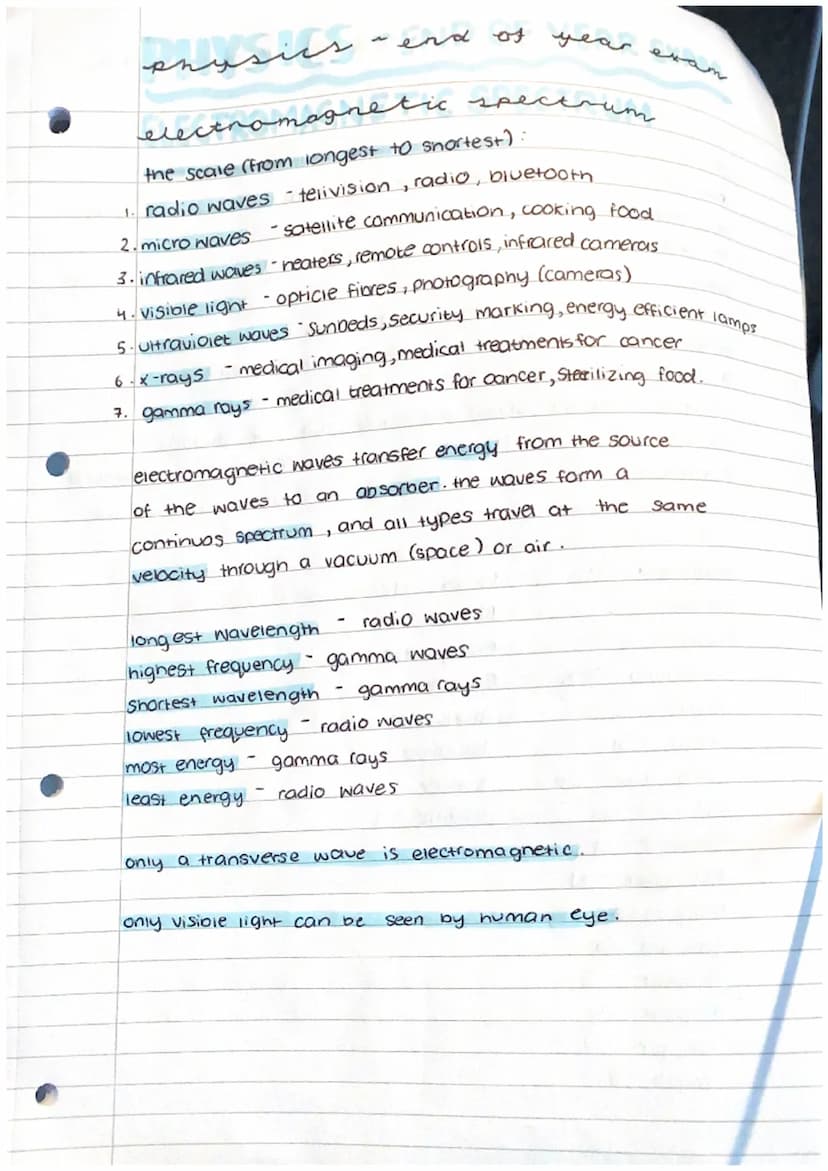 physics - end of year exam
electromagnetic spectrum
the scale (from longest to shortest):
1. radio waves - telivision, radio, bluetooth
2. micro waves - satellite communication, cooking food
3. infrared waves - heaters, remote controls, infrared cameras
4. visible light - opticle fibres, photography (cameras)
5. ultraviolet waves - sunbeds, security marking, energy efficient lamps
6. x-rays - medical imaging, medical treatments for cancer
7. gamma rays - medical treatments for cancer, sterilizing food.
electromagnetic waves transfer energy from the source
of the waves to an absorber. the waves form a
continuos spectrum, and all types travel at the same
velocity through a vacuum (space) or air.
longest wavelength - radio waves
highest frequency - gamma waves
shortest wavelength - gamma rays
lowest frequency - radio waves
most energy - gamma rays
least energy - radio waves
only a transverse wave is electromagnetic.
only visible light can be seen by human eye.